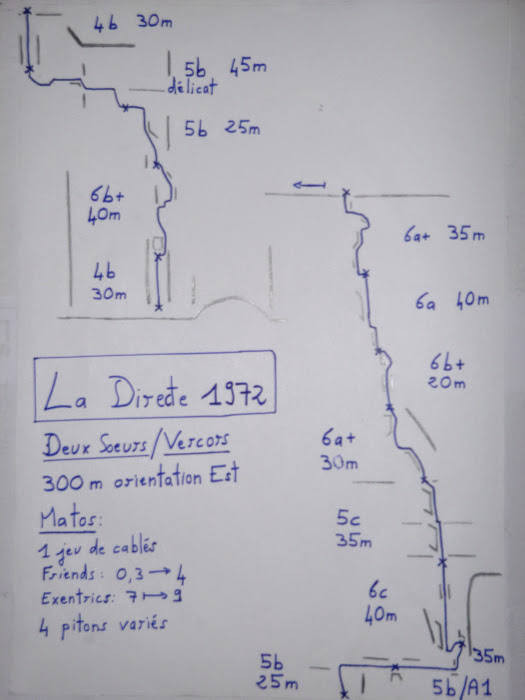 4b 30m
5b 45m
délicat
5b 25m
6b+
40m
4b
30m
La Directe 1972
Deux Soeurs/Vercors
300 m orientation Est
Matos:
1 jeu de cablés
Friends: 0,3 → 4
Exentrics: 7 ↦ 9
4 pitons variés
6a+ 35m
6a 40m
6b+
20m
6a+
30m
5c
35m
6c
40m
35m
5b/A1
5b
25m